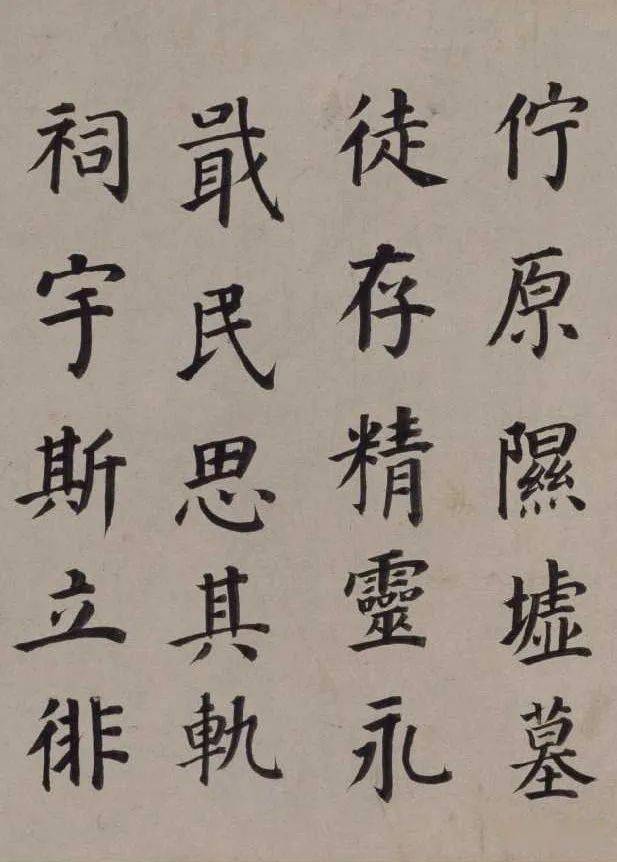 佇原隰墟墓
徒存精靈永
戢民思其軌
祠宇斯立徘